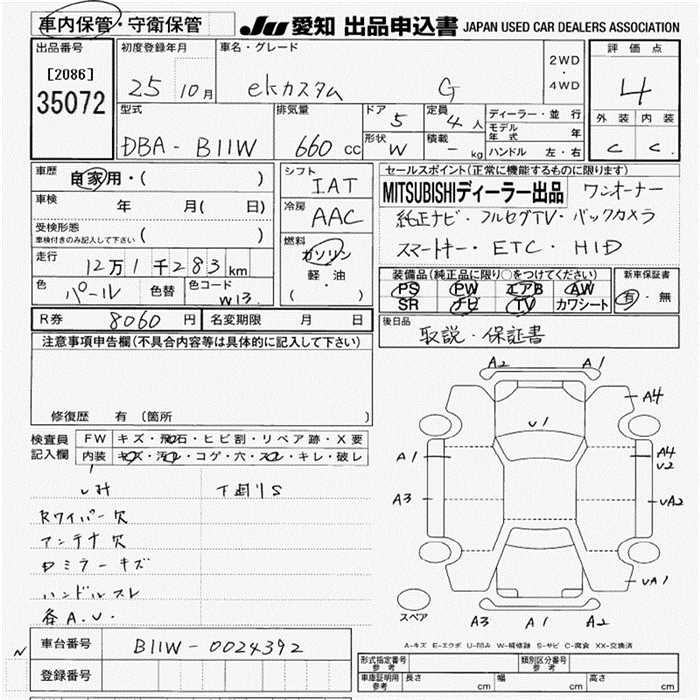 車内保管・守衛保管 JU 愛知 出品申込書 JAPAN USED CAR DEALERS ASSOCIATION
出品番号 [2086] 35072
初度登録年月 25 10月
車名・グレード ekカスタム G
2WD・4WD
評価点 4
外装 C 内装 C.
型式 DBA-B11W
排気量 660cc
ドア 5
定員 4人
形状 W
積載 - kg
ディーラー・並行
モデル年式 年
ハンドル 左・右
車歴 自家用・( )
車検 年 月( 日)
受検形態 車検付きのみ記入して下さい ( )
走行 12万1千283km
色 パール 色替 色コード W13
シフト IAT
冷房 AAC
燃料 ガソリン 軽・油 ( ・ )
セールスポイント(正常に機能するものに限ります)
MITSUBISHIディーラー出品 ワンオーナー
純正ナビ・フルセグTV・バックカメラ
スマートキー・ETC・HID
装備品(純正品に限り○をつけてください) 新車保証書
PS PW エアB AW 有・無
SR ナビ TV カワシート
R券 8060円 名変期限 月 日
後日品 取説・保証書
注意事項申告欄(不具合内容等は具体的に記入して下さい)
修復歴 有 (箇所
検査員記入欄
FW キズ・飛石・ヒビ割・リペア跡・X要
内装 キズ・汚レ・コゲ・穴・スレ・キレ・破レ
シミ 下廻りS
Rワイパー欠
アンテナ欠
Dミラーキズ
ハンドルスレ
各A.U.
A2 A1
A4
U1
A1 A4 U2
A3 UA2
UA1
スペア A3 A1 A2
A-キズ E-エクボ U-凹み W-補修跡 S-サビ C-腐食 XX-交換済
N 車台番号 B11W-0024392
登録番号
形式指定番号 参考 類別区分番号 参考
車庫証明用 参考 長さ cm 幅 cm 高さ cm